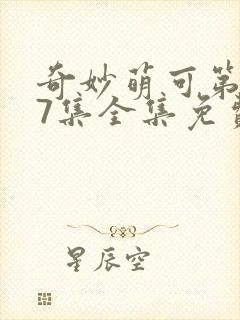 奇妙萌可第
7集全集免费
星辰空